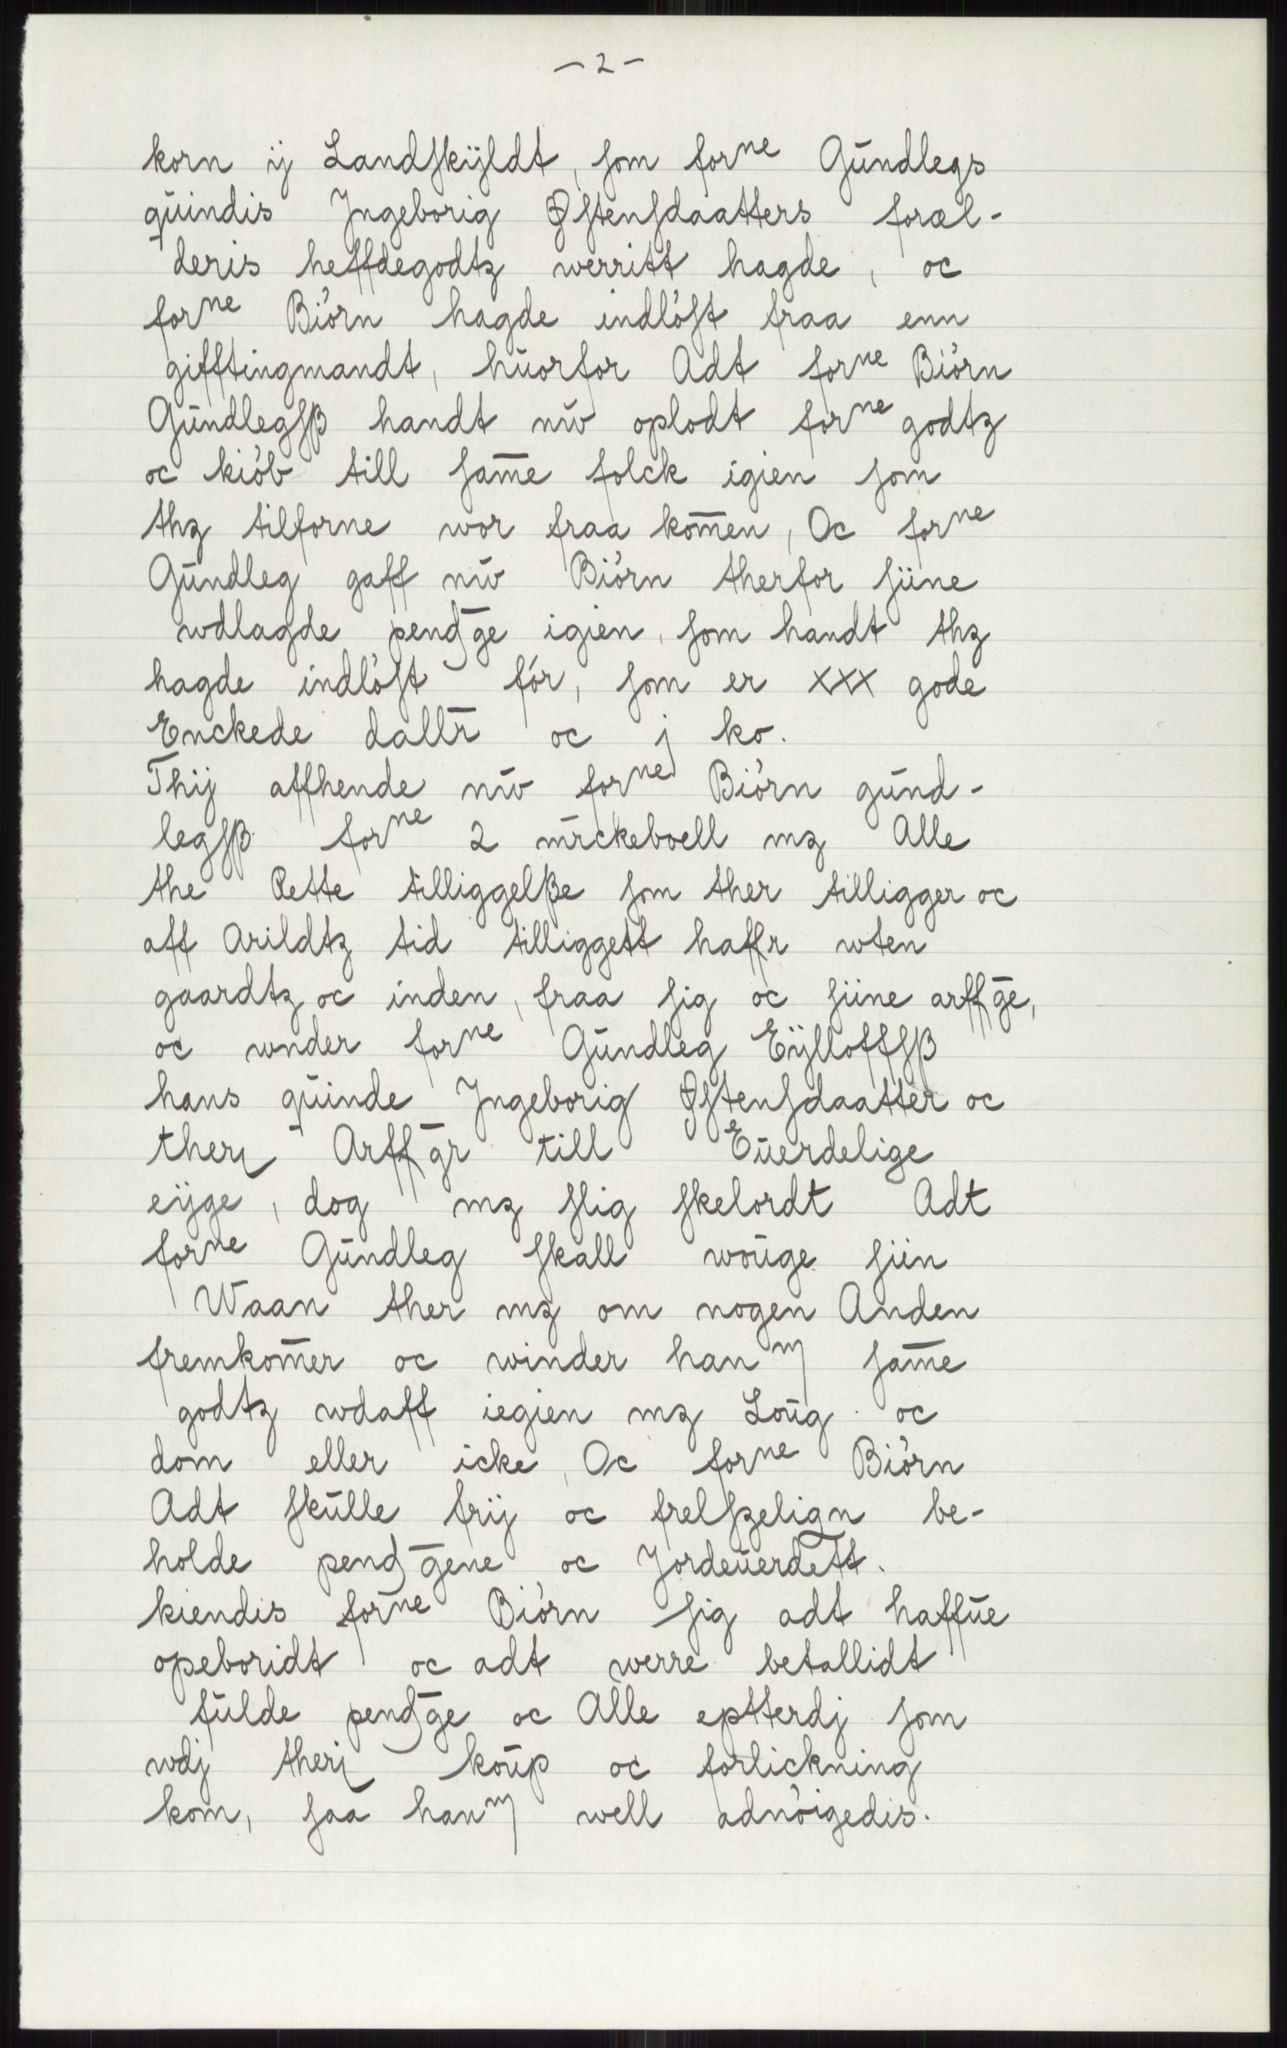 - 2 -
korn ij Landskÿldt, som forne Gŭndlegs
qŭindis Jngeborig Østensdaatters foræl-
deris heffdegodtz werritt hagde, oc
forne Biórn hagde indlóst fraa enn
gifftingmandt, hŭorfor Adt forne Biórn
Gŭndlegsß handt nŭv oplodt forne godtz
oc kiób till sam̄e folck igien som
thz tilforne wor fraa kom̄en, Oc forne
Gŭndleg gaff nŭv Biórn therfor siine
wdlagde pendḡe igien, som handt thz
hagde indlóst fór, som er xxx gode
Enckede dallr̄ oc j ko.
Thij affhende nŭv forne Biórn gŭnd-
legsß forne 2 mr̄ckeboell mz Alle
the Rette tilliggelße som ther tilligger oc
aff Arildtz tid tilliggett haffr wten
gaardtz oc inden, fraa sig oc siine arffḡe,
oc wnder forne Gŭndleg Eÿlloffsß
hans qŭinde Jngeborig Østensdaatter oc
theri Arffḡr till Eŭerdelige
eÿge, dog mz slig skelordt Adt
forne Gŭndleg skall woŭge siin
Waan ther mz om nogen Anden
fremkom̄er oc winder hanm sam̄e
godtz wdaff iegien mz Loŭg oc
dom eller icke, Oc forne Biórn
Adt skŭlle frij oc frelszelign be-
holde pendḡene oc Jordeŭerdett.
kiendis forne Biórn sig adt haffŭe
opeboridt oc adt werre betallidt
fŭlde pendḡe oc Alle eptterdj som
wdj theri koŭp oc forlickning
kom, saa hanm well adnóigedis.